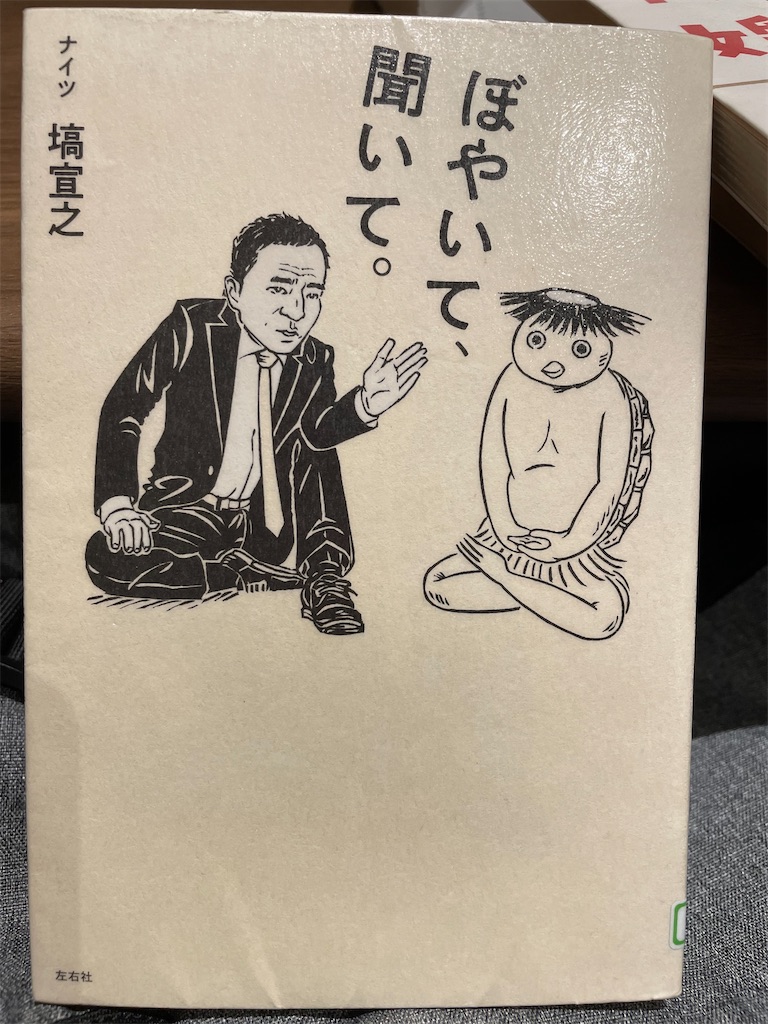 ぼやいて、
聞いて。
ナイツ 塙宣之
左右社